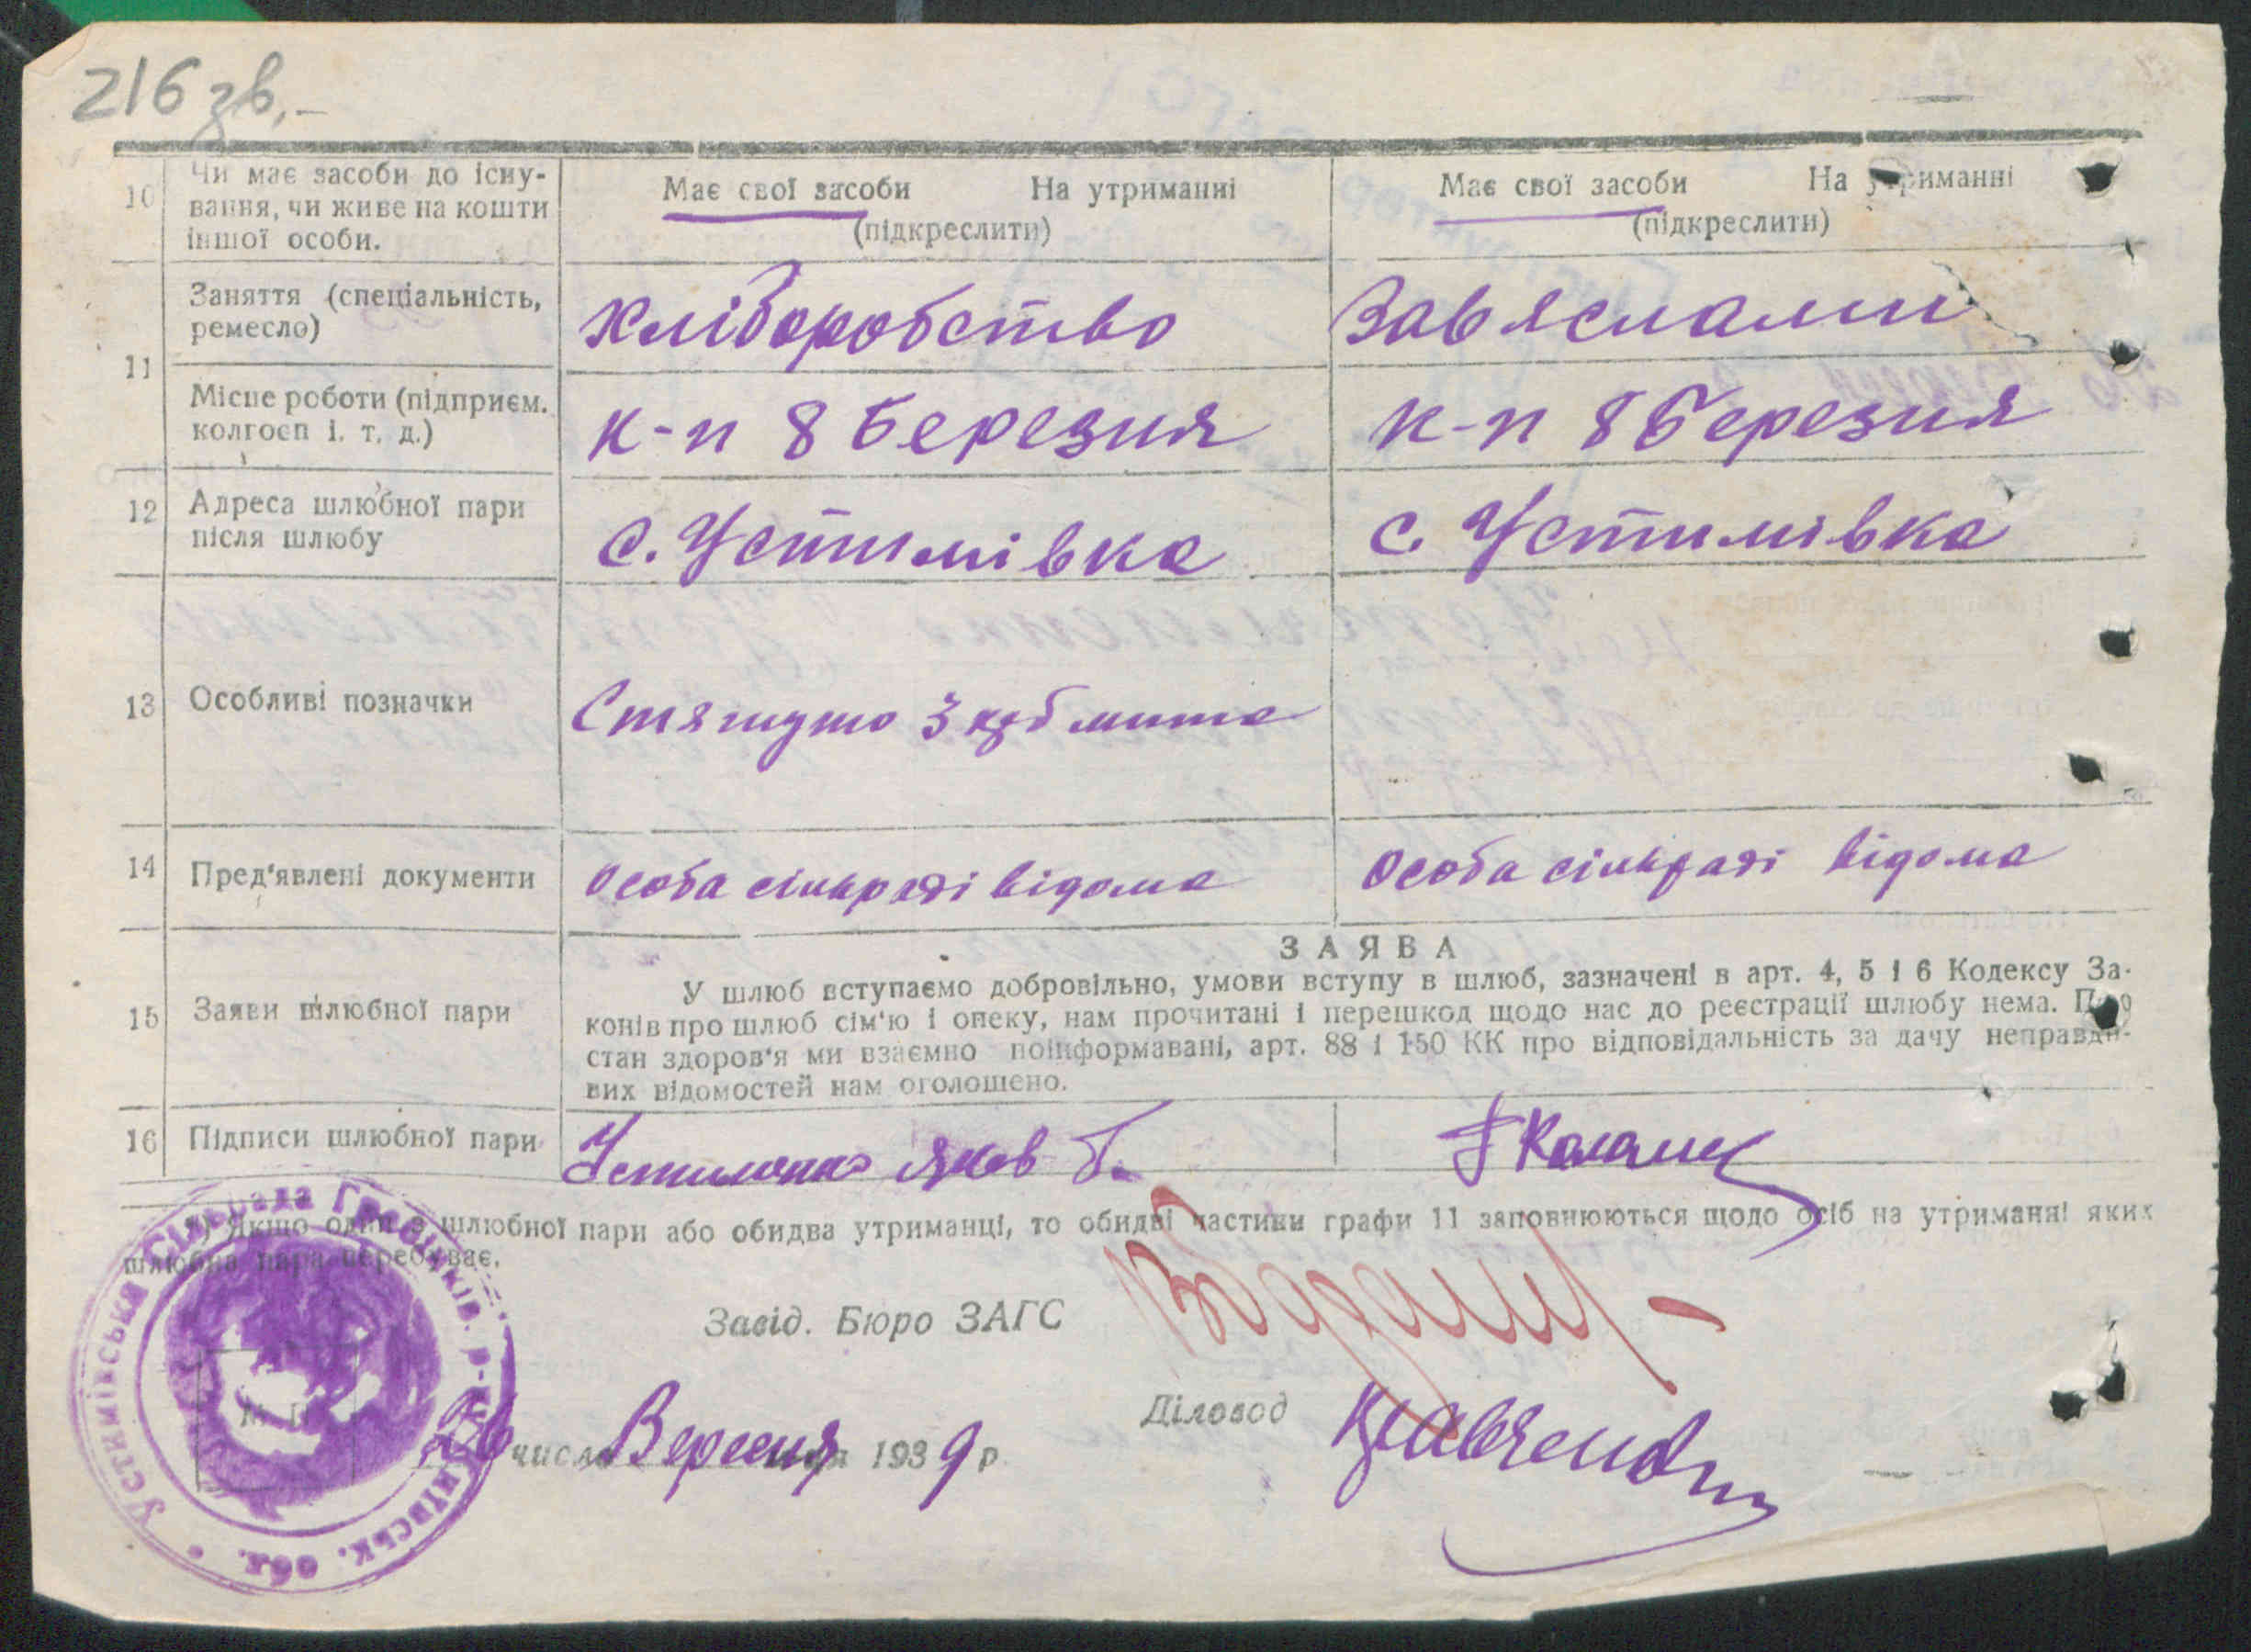 216 зв.
10 Чи має засоби до існу-
вання, чи живе на кошти
іншої особи.
Має свої засоби На утриманні
(підкреслити)
Має свої засоби На утриманні
(підкреслити)
11
Заняття (спеціальність,
ремесло)
Хліборобство
Зав яслами
Місце роботи (підприєм.
колгосп і. т. д.)
к-п 8 Березня
к-п 8 Березня
12 Адреса шлюбної пари
після шлюбу
с. Устимівка
с. Устимівка
13 Особливі позначки
Стягнуто 3 крб мита
14 Пред'явлені документи
Особа сільраді відома
Особа сільраді відома
15 Заяви шлюбної пари
ЗАЯВА
У шлюб вступаємо добровільно, умови вступу в шлюб, зазначені в арт. 4, 5 і 6 Кодексу За-
конів про шлюб сім'ю і опеку, нам прочитані і перешкод щодо нас до реєстрації шлюбу нема. Про
стан здоров'я ми взаємно поінформавані, арт. 88 і 150 КК про відповідальність за дачу неправди-
вих відомостей нам оголошено.
16 Підписи шлюбної пари
Устименко Яков Г.
*) Якщо один з шлюбної пари або обидва утриманці, то обидві частини графи 11 заповнюються щодо осіб на утриманні яких
шлюбна пара перебуває.
Завід. Бюро ЗАГС
Діловод Кравченко
М. П.
26 числа Вересня 1939 р.
Устимівська Сільрада Гребінків. р-ну Київськ. обл.